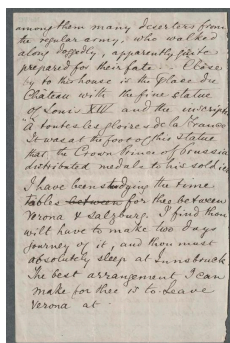 among them many deserters from
the regular army, who walked
along doggedly, apparently quite
prepared for their fate. - Close
by to this house is the Place du
Château with the fine statue
of Louis XIV and the inscription
"à toutes les gloires de la France"
It was at the foot of this statue
that the Crown Prince of Prussia
distributed medals to his soldiers
I have been studying the time
tables between for thee between
Verona & Salzburg. I find thou
wilt have to make two days
journey of it, and thou must
absolutely sleep at Innsbruck
The best arrangement I can
make for thee is to leave
Verona at